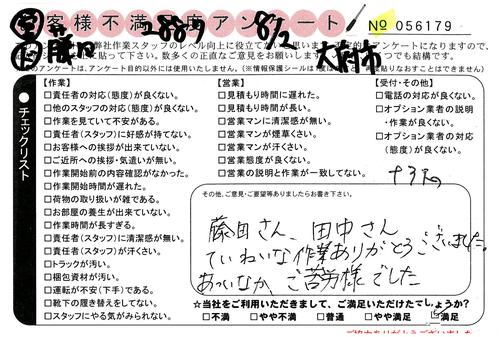 お客様不満足度アンケート
2889
8/2
№ 056179
大府市
弊社作業スタッフのレベル向上に役立て
数多くの適直なご意見をお願いします
アンケートは、アンケート目的以外には使用いたしません。
チェックリスト
【作業】
□責任者の対応(態度)が良くない。
□他のスタッフの対応(態度)が良くない。
□作業を見ていて不安がある。
□責任者(スタッフ)に好感が持てない。
□お客様への挨拶が出来ていない。
□ご近所への挨拶・気遣いが無い。
□作業開始前の内容確認がなかった。
□作業開始時間が遅れた。
□荷物の取り扱いが雑である。
□お部屋の養生が出来ていない。
□作業時間が長すぎる。
□責任者(スタッフ)に清潔感が無い。
□責任者(スタッフ)が汗くさい。
□トラックが汚い。
□梱包資材が汚い。
□運転が不安(下手)である。
□靴下の履き替えをしてない。
□スタッフにやる気がみられない。
【営業】
□見積もり時間に遅れた。
□見積もり時間が長い。
□営業マンに清潔感が無い。
□営業マンが煙草くさい。
□営業マンが汗くさい。
□営業態度が良くない。
□営業の説明と作業が一致してない。
【受付・その他】
□電話の対応が良くない。
□オプション業者の説明・作業が良くない。
□オプション業者の対応(態度)が良くない。
その他、ご意見・ご要望等ありましたらお書き下さい。
藤田さん、田中さん
ていねいな作業ありがとうございました。
あついなか、ご苦労様でした
☆当社をご利用いただきまして、ご満足いただけたでしょうか?
□不満 □やや不満 □普通 □やや満足 ☑満足